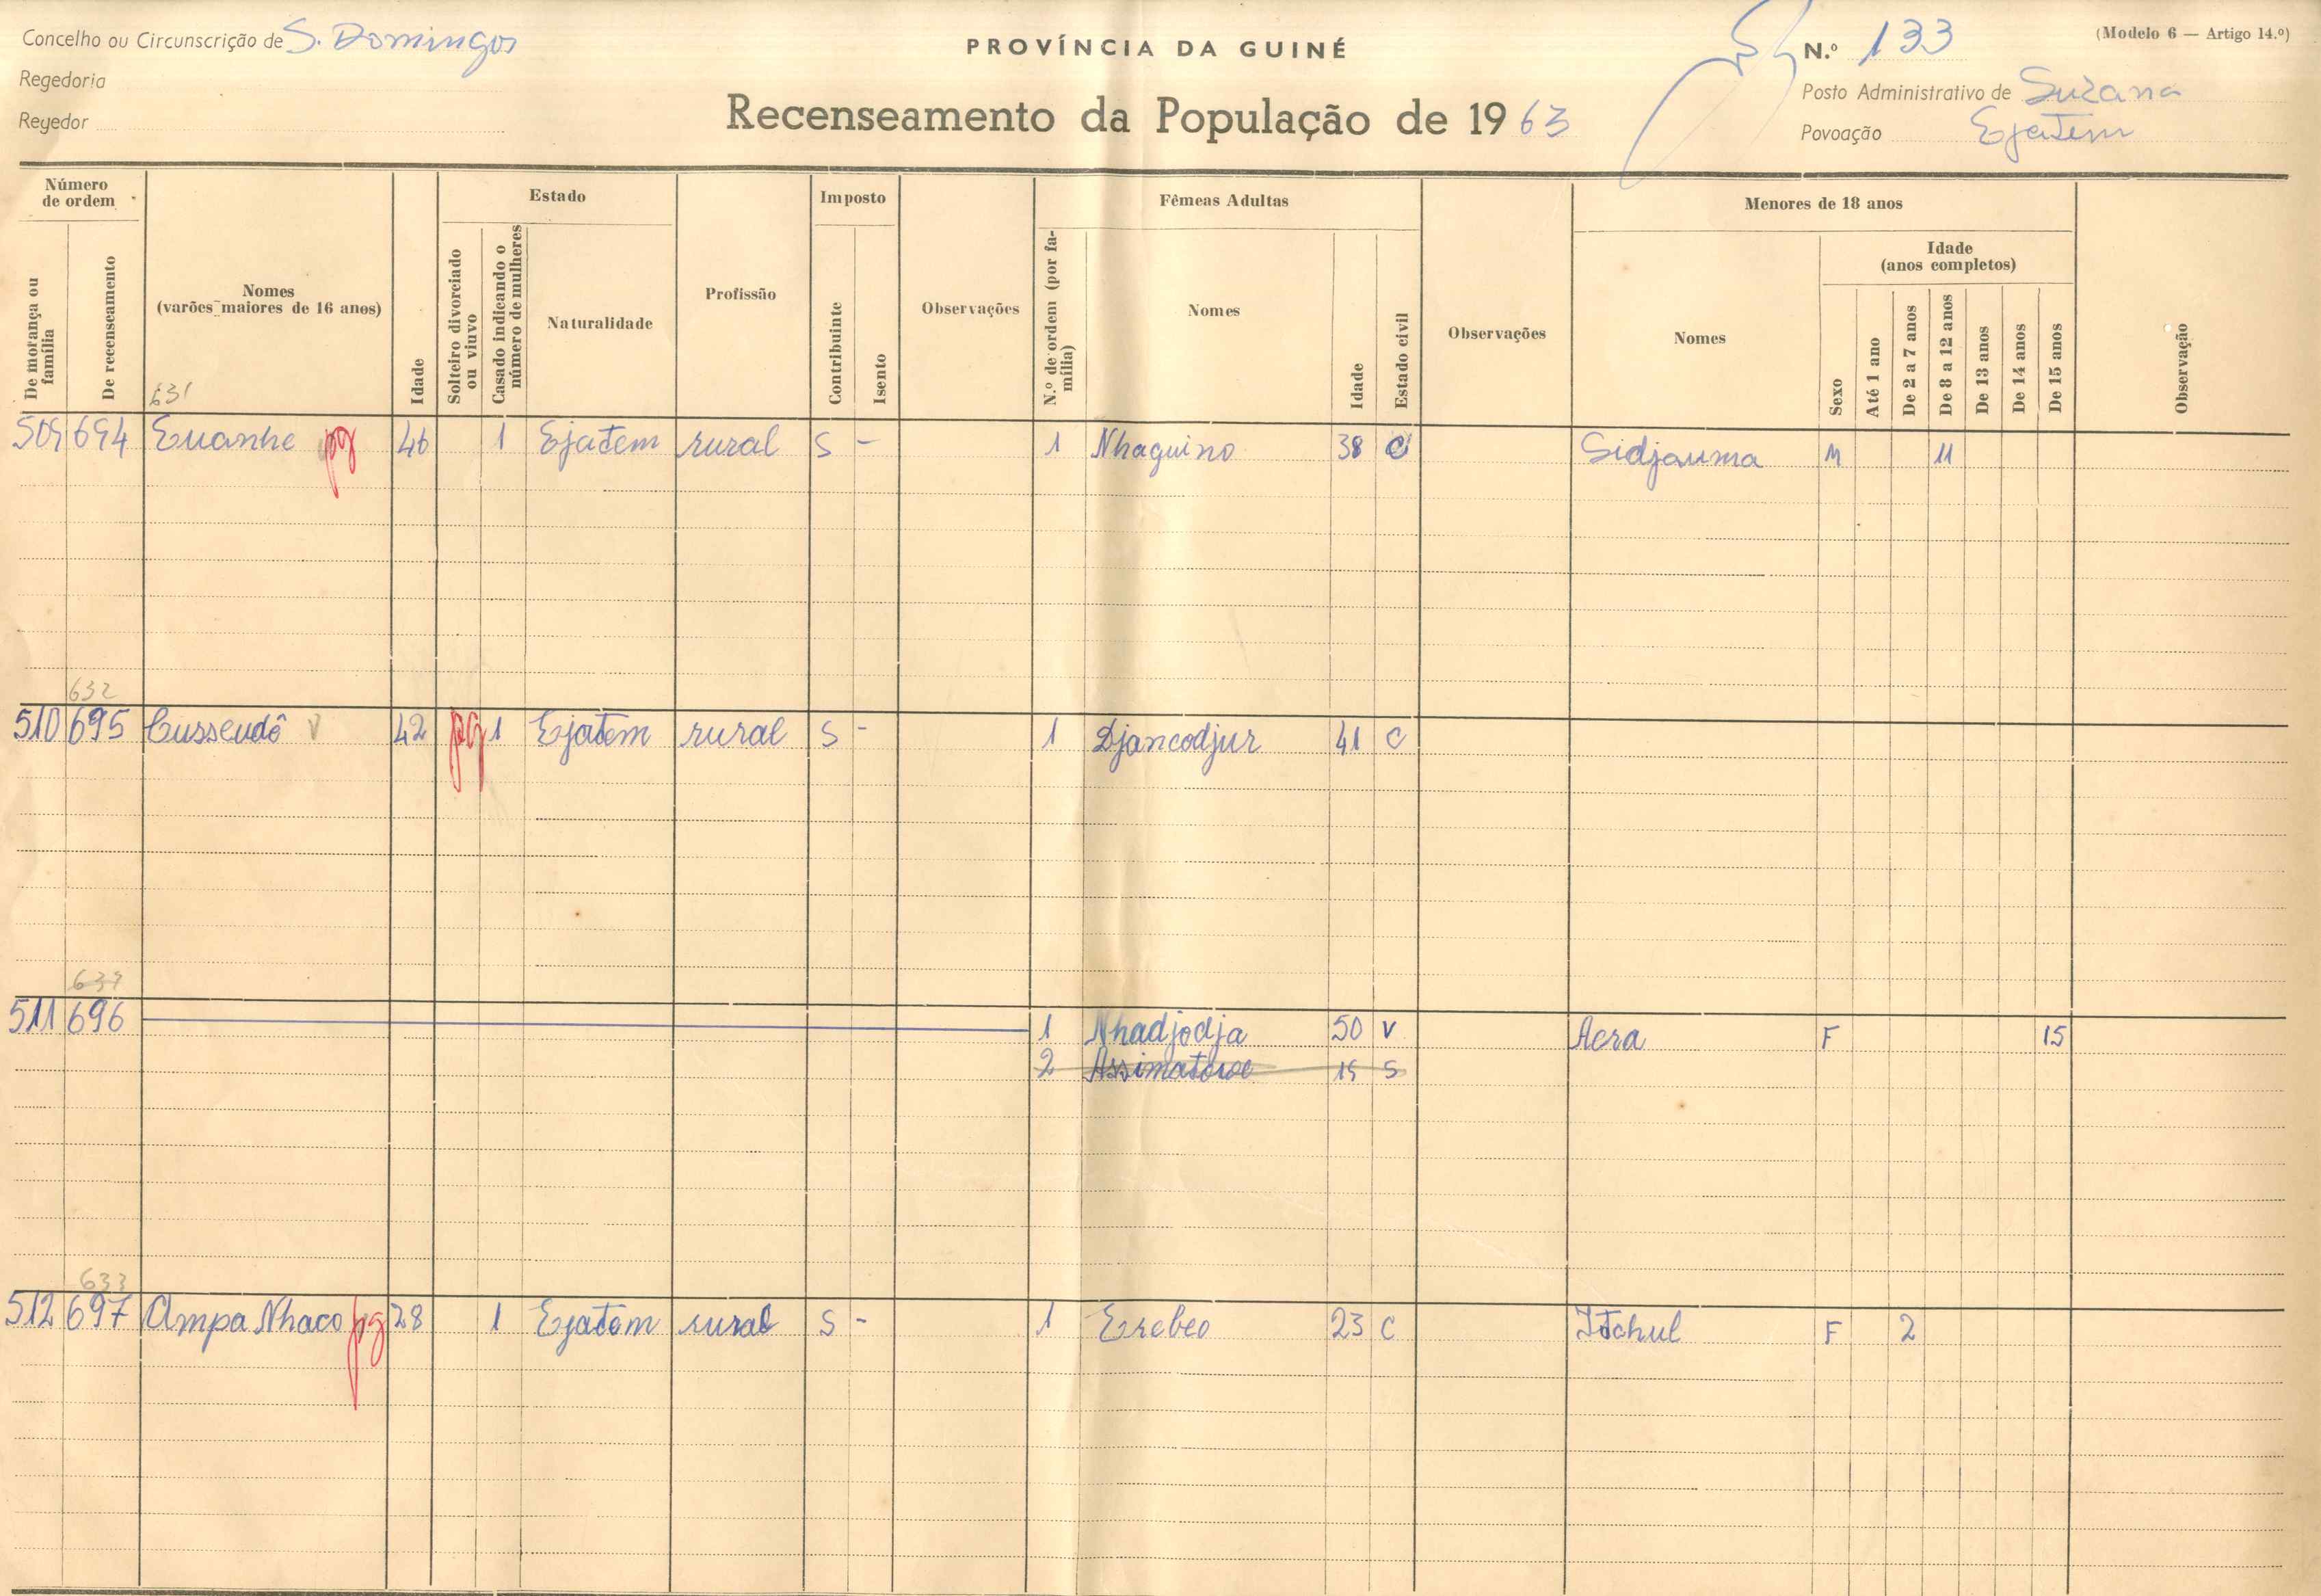 Concelho ou Circunscrição de S. Domingos
Regedoria
Regedor
PROVÍNCIA DA GUINÉ
Recenseamento da População de 1963
N.º 133
(Modelo 6 — Artigo 14.º)
Posto Administrativo de Suzana
Povoação Ejatem
Número de ordem
De morança ou família
De recenseamento
Nomes
(varões maiores de 16 anos)
Idade
Estado
Solteiro divorciado ou viuvo
Casado indicando o número de mulheres
Naturalidade
Profissão
Imposto
Contribuinte
Isento
Observações
Fêmeas Adultas
N.º de ordem (por família)
Nomes
Idade
Estado civil
Observações
Menores de 18 anos
Nomes
Sexo
Idade
(anos completos)
Até 1 ano
De 2 a 7 anos
De 8 a 12 anos
De 13 anos
De 14 anos
De 15 anos
Observação
631
509 694 Euanhe pg 46 1 Ejatem rural S - 1 Nhaquino 38 C Sidjauma M 11
632
510 695 Cusseudô V 42 pg 1 Ejatem rural S - 1 Djancodjur 41 C
511 696 1 Nhadjodja 50 V Acra F 15
2 15 S
633
512 697 Ampa Nhaco pg 28 1 Ejatem rural S - 1 Erebeo 23 C Itchul F 2